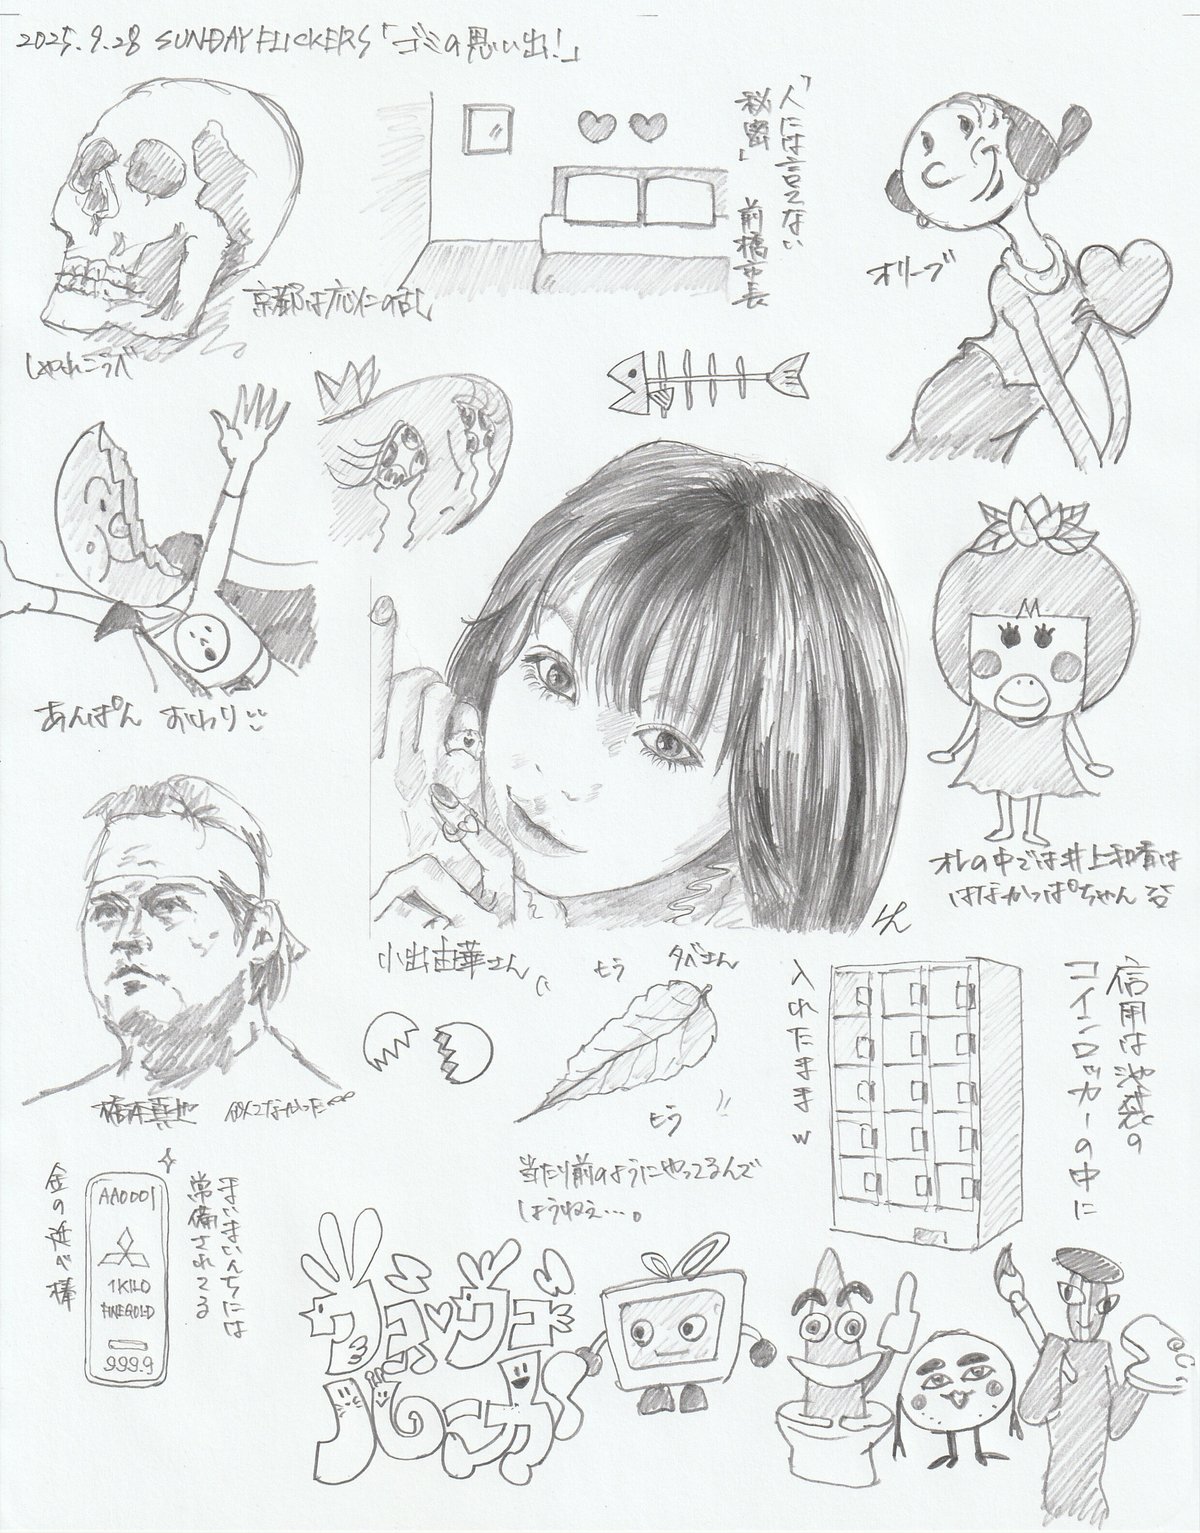 2025.9.28 SUNDAY FLICKERS「ゴミの思い出!」
「人には言えない
秘密」 前橋市長
オリーブ
京都は応仁の乱
しゃれこうべ
あんぱん おわり
オレの中では井上和香は
はなかっぱちゃん
小出由華さん
ヒラ タベさん
ヒラ
当たり前のようにやってるんで
しょうねぇ…。
信用は池袋の
コインロッカーの中に
入れたままw
橋本真也 似てなかった
まいまいんちには
常備されてる
金の延べ棒
AA0001
1KILO
FINEGOLD
999.9